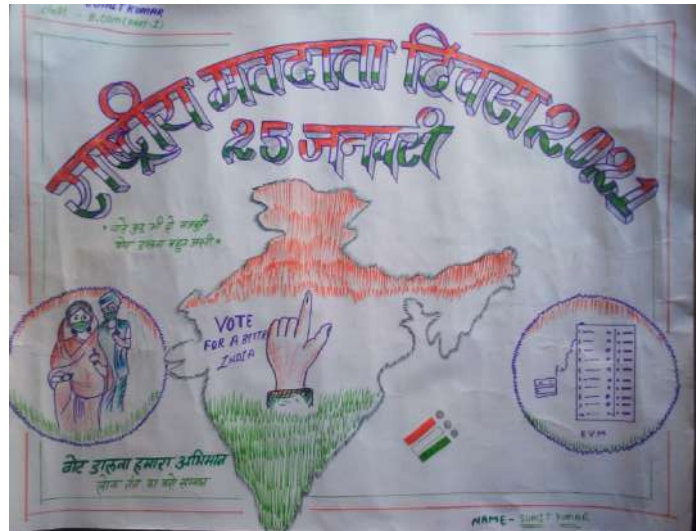 SUMIT KUMAR
CLASS - B.COM (PART-I)
राष्ट्रीय मतदाता दिवस 2021
25 जनवरी
"चाहे कुछ भी हो मजबूरी
वोट डालना बहुत जरूरी"
VOTE
FOR A BETTER
INDIA
EVM
वोट डालना हमारा अभिमान
लोक तंत्र का करो सम्मान
NAME- SUMIT KUMAR